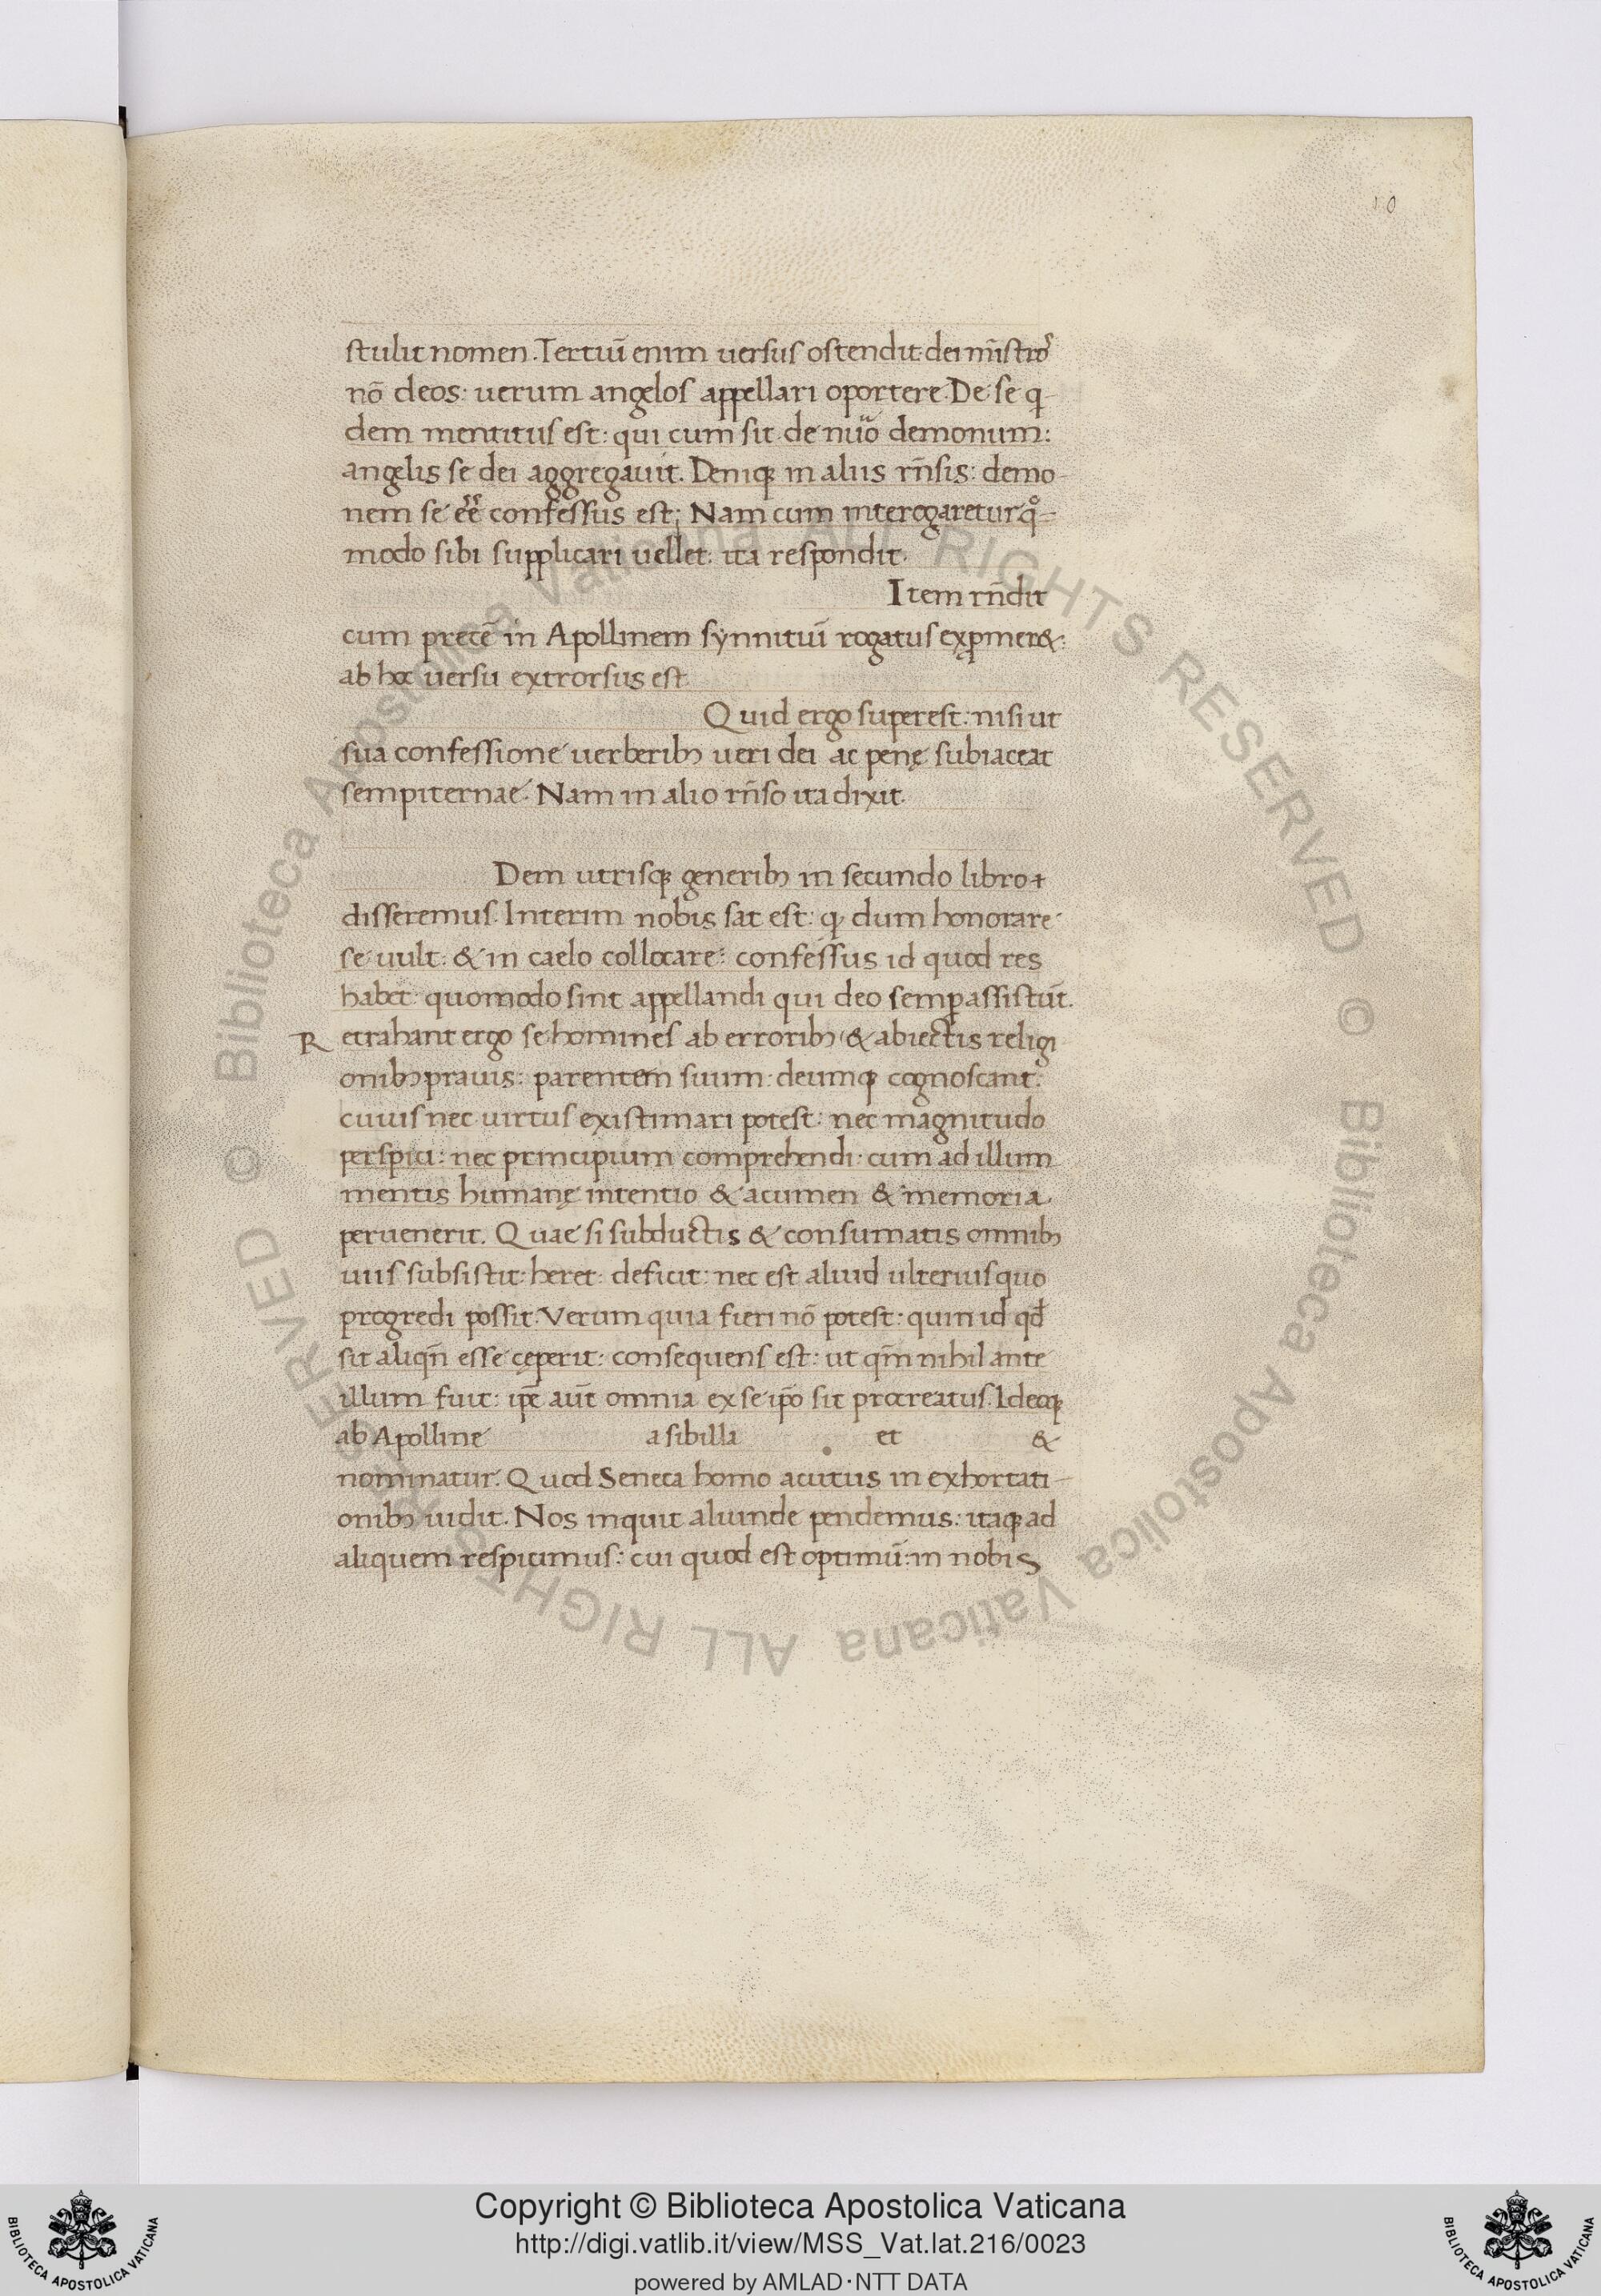 10
stulit nomen. Tertiuī enim uersus ostendit: dei mīstroꝝ
nō deos: uerum angelos appellari oportere. De se q-
dem mentitus est: qui cum sit de nūo demonum:
angelis se dei aggregauit. Deniqꝫ in aliis rn̄sis: demo-
nem se eē confessus est; Nam cum interogaretur qͦ-
modo sibi supplicari uellet: ita respondit.
Item rn̄dit
cum precē in Apollinem synnituī rogatus exꝓmer&:
ab hoc uersu extrorsus est.
Quid ergo superest: nisi ut
sua confessione uerberibꝫ ueri dei ac penę subiaceat
sempiternae. Nam in alio rn̄so ita dixit.
Dem utrisqꝫ generibꝫ in secundo libro
disseremus. Interim nobis sat est: ꝙ dum honorare
se uult: & in caelo collocare: confessus id quod res
habet: quomodo sint appellandi qui deo semꝑ assistūt.
Retrahant ergo se homines ab erroribꝫ & abiectis religi
onibꝫ prauis: parentem suum: deumqꝫ cognoscant:
cuius nec uirtus existimari potest: nec magnitudo
perspici: nec principium comprehendi: cum ad illum
mentis humanę intentio & acumen & memoria
peruenerit. Quae si subductis & consumatis omnibꝫ
uiis subsistit: heret: deficit: nec est aliud ulterius quo
progredi possit. Verum quia fieri nō potest: quin id qd̄
sit aliqn̄ esse cęperit: consequens est: ut qm̄ nihil ante
illum fuit: ip̄e aūt omnia ex se ip̄o sit procreatus. Ideoqꝫ
ab Apolline a sibilla et &
nominatur. Quod Seneca homo acutus in exhortati-
onibꝫ uidit. Nos inquit aliunde pendemus: itaqꝫ ad
aliquem respicimus: cui quod est optimū: in nobis
© Biblioteca Apostolica Vaticana ALL RIGHTS RESERVED © Biblioteca Apostolica Vaticana ALL RIGHTS RESERVED
Copyright © Biblioteca Apostolica Vaticana
http://digi.vatlib.it/view/MSS_Vat.lat.216/0023
powered by AMLAD·NTT DATA
BIBLIOTECA APOSTOLICA VATICANA
BIBLIOTECA APOSTOLICA VATICANA